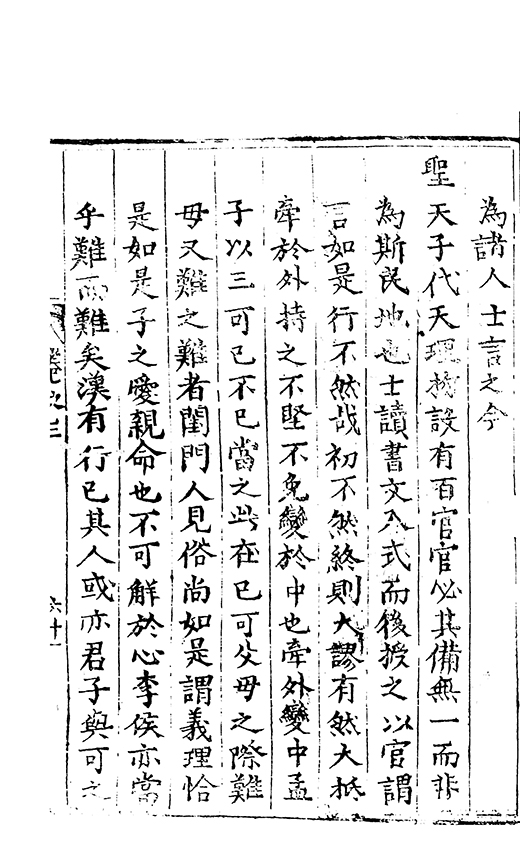 為諸人士言之今
聖天子代天理物設有百官官必其備無一而非
為斯民地也士讀書文入式而後授之以官謂
言如是行不然哉初不然終則大謬有然大抵
牽於外持之不堅不免變於中也牽外變中孟
子以三可已不已當之此在已可父母之際難
毋又難之難者閨門人見俗尚如是謂義理恰
是如是子之愛親命也不可解於心李侯亦當
乎難而難矣漢有行已其人或亦君子與可之
卷之三
六十一